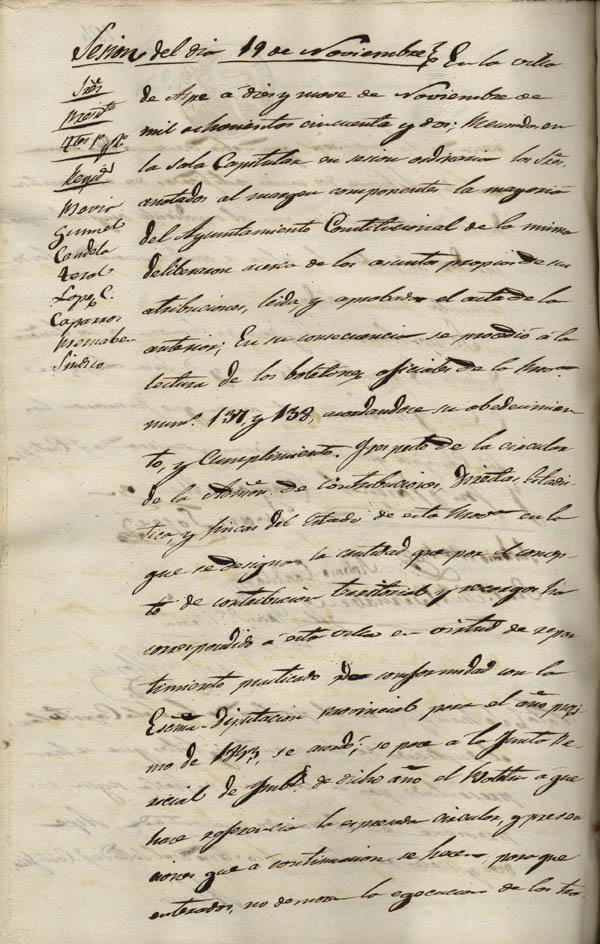 Sesion del dia 19 de Noviembre En la villa
Sres
Presidte
Ttes 1º y 2º
Regids
Pavia
Gumiel
Candela
Terol
Lopez C.
Caparros
Pernabeu
Sindico
de Aspe a diez y nueve de Noviembre de
mil ochocientos cincuenta y dos; Reunidos en
la Sala Capitular en sesion ordinaria los Sres.
anotados al margen componentes la mayoria
del Ayuntamiento Constitucional de la misma
deliberaron acerca de los asuntos propios de sus
atribuciones, leida, y aprobada el acta de la
anterior; En su consecuencia se procedió á la
lectura de los boletines oficiales de la Prova
nums. 137, y 138, acordandose su obedecimien-
to, y Cumplimiento. Y respecto de la circular
de la Admon. de Contribuciones Directas Estadis-
tica, y fincas del Estado de esta Prova en la
que se designa la cantidad que por el concep-
to de contribucion territorial y recargos ha
correspondido á esta villa en virtud de repar-
timiento practicado de conformidad con la
Escma. Diputacion Provincial para el año procsi-
mo de 1853, se acordó; se pase a la Junta Pe-
ricial de dicho año el Boletin á que
hace referencia la espresada circular, y preven-
ciones que a continuacion se hacen para que
enterados, no demoren la egecucion de los tra-